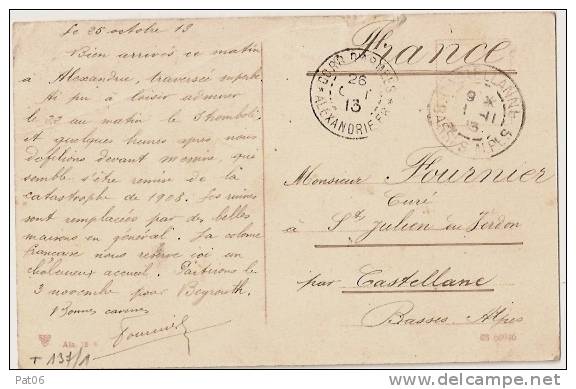 Le 26 octobre 13
Bien arrivés ce matin
à Alexandrie, traversée superbe
Ai pu à loisir admirer
le 22 au matin le Stromboli
et quelques heures après nous
défilions devant Messine, qui
semble s'être remise de la
catastrophe de 1908. Les ruines
sont remplacées par des belles
maisons en général. La colonie
française nous réserve ici un
chaleureux accueil. Partirons le
3 novembre pour Beyrouth.
Bonnes
Fournier
France
CORR. D'ARMÉES
26
13
ALEXANDRIE
9
1 -11
13
Monsieur Fournier
Curé
à St Julien du Verdon
par Castellane
Basses-Alpes
T 137/1
Pat06
http://www.delcampe.net